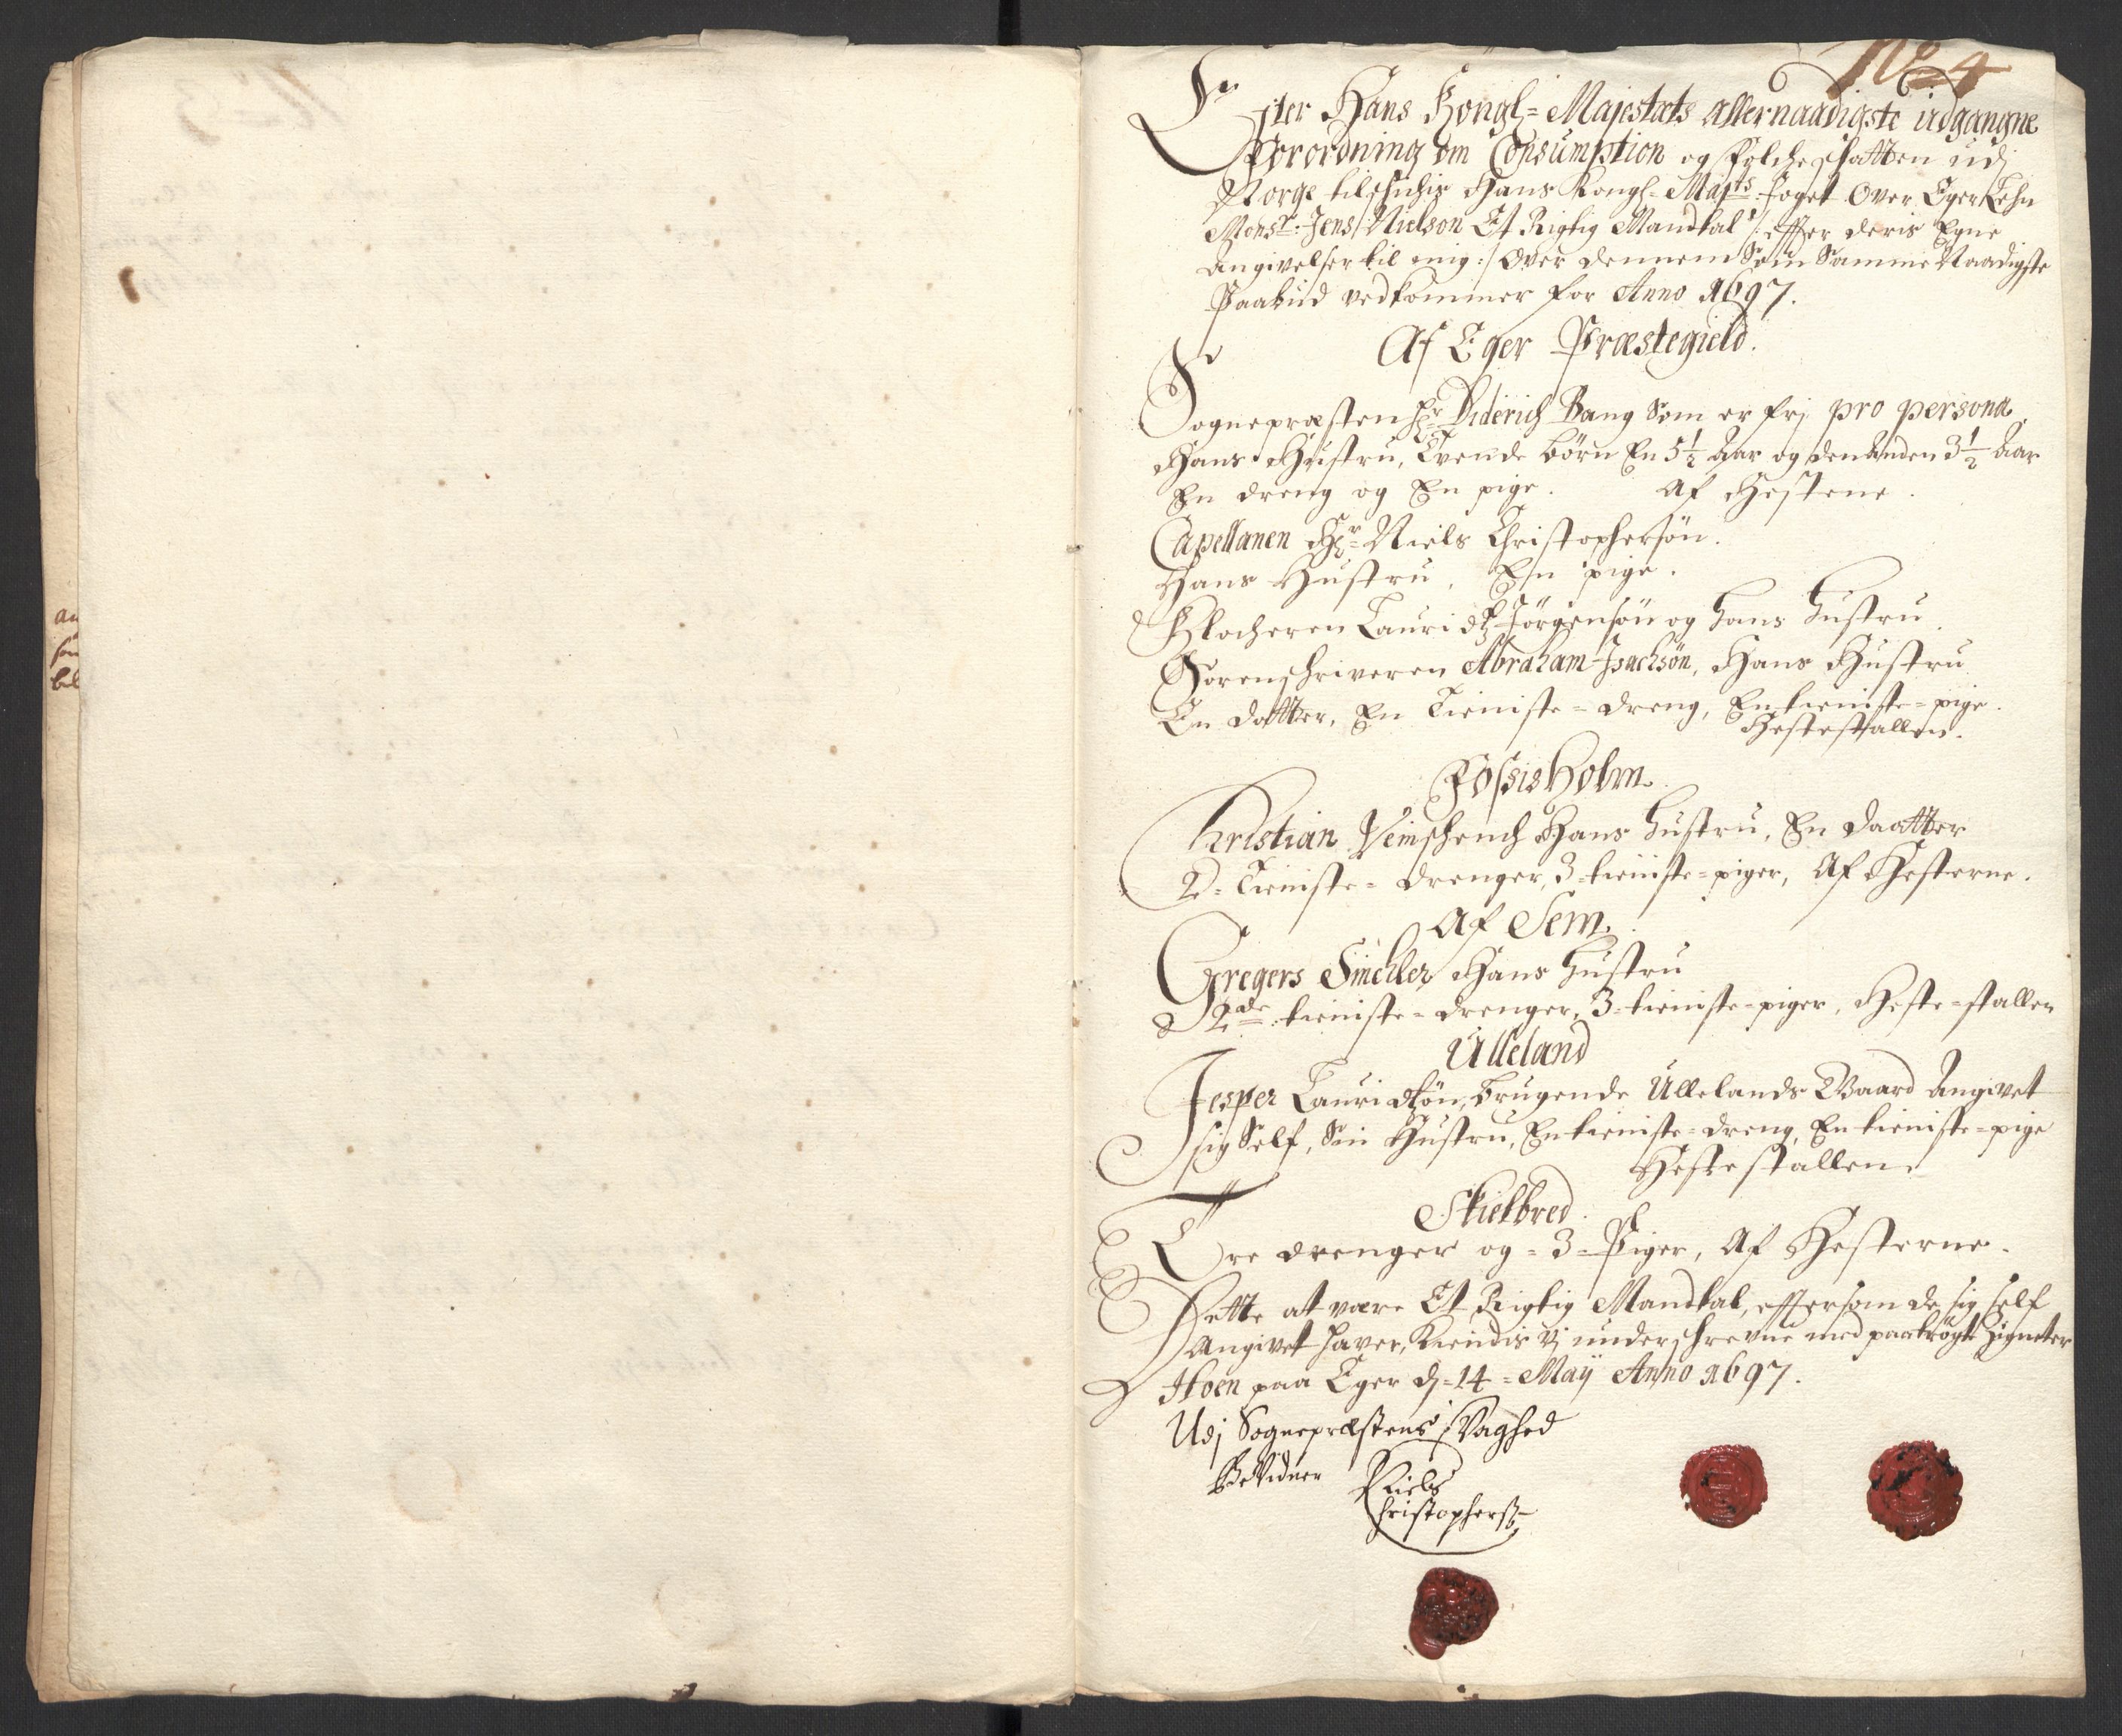 No 4
Efter Hans Kongl= Majestæts allernaadigste udgangne
Forordning om Consumption og Folcheschatten udj
Norge tilschichis Hans Kongl= Majts Foget Over Eger Lehn
Monsr. Jens Nielson Et Rigtig Mandtal /: efter deris Egne
angivelser til mig :/ Over dennem Som Samme Naadigste
Paabud vedkommer for Anno 1697.
Af Eger Præstegield.
Sognepræsten Hr Diderich Bang Som er frj pro persona,
Hans Hustru, Tvende børn En 5½ Aar og den Anden 3½ Aar
En dreng og En pige. Af Hestene.
Capellanen Hr= Niels Christophersøn.
Hans Hustru, En pige.
Klocheren Lauridtz Jørgensøn og hans hustru.
Sorenschriveren Abraham Isachsøn, Hans Hustru
En datter, En Tieniste= dreng, En tieniste= pige.
Hestestallen.
Fossisholm.
Christian Veinschench Hans hustru, En daatter
2= Tieniste= drenger, 3= tieniste= piger, Af Hesterne.
Af Sem.
Gregers Smeller Hans hustru
2de tieniste= drenger, 3= tieniste= piger, Heste= stallen
Ulleland
Jesper Lauridtzøn, brugende Ullelands Gaard Angivet
sig Self, Sin Hustru, En tieniste= dreng, En tieniste= pige
Hestestallen.
Skielbred.
Tre drenger og= 3= Piger, Af Hesterne.
Dette at være Et Rigtig Mandtal, eftersom de sig self
Angivet haver, Kiendis vj underschrevne med paatrøgte Zigneter
Hoen paa Eger d= 14= Maij Anno 1697.
Udj Sognepræstens Svaghed
Bevidner Niels
Christophers: